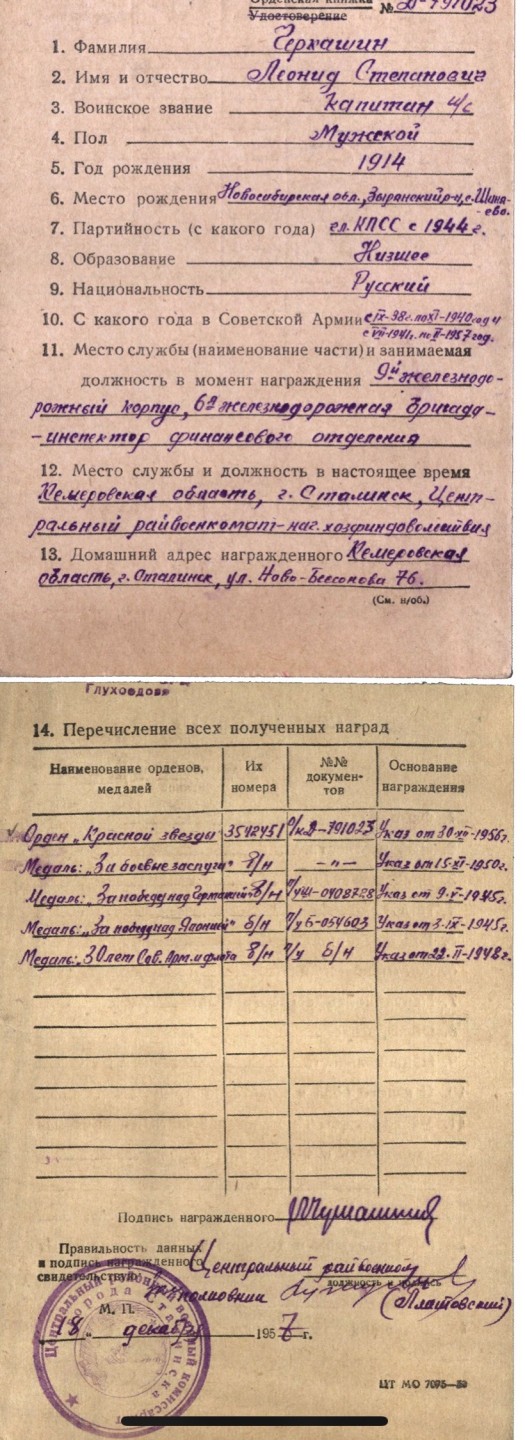 Орденская книжка № Д-791023
Удостоверение
1. Фамилия Черкашин
2. Имя и отчество Леонид Степанович
3. Воинское звание капитан и/с
4. Пол Мужской
5. Год рождения 1914
6. Место рождения Новосибирская обл., Зырянский р-н, с. Шина-
ево.
7. Партийность (с какого года) чл. КПСС с 1944 г.
8. Образование Низшее
9. Национальность Русский
10. С какого года в Советской Армии с IX-38г. по XI-1940 год и
с VII-1941г. по II-1957 год.
11. Место службы (наименование части) и занимаемая
должность в момент награждения 9й железнодо-
рожный корпус, 6я железнодорожная бригада-
-инспектор финансового отделения
12. Место службы и должность в настоящее время
Кемеровская область, г. Сталинск, Цент-
ральный райвоенкомат-нач. хозфиндовольствия
13. Домашний адрес награжденного Кемеровская
область, г. Сталинск, ул. Ново-Бессонова 76.
(См. н/об.)
Глухоедова
14. Перечисление всех полученных наград
Наименование орденов, медалей Их номера №№ докумен-тов Основание награждения
Орден „Красной звезды" 3542451 о/к Д-791023 Указ от 30-XII-1956г.
Медаль: „За боевые заслуги" б/н -"- Указ от 15-XI-1950г.
Медаль: „За победу над Германией" б/н у Ш-0408728 Указ от 9-V-1945г.
Медаль: „За победу над Японией" б/н у Б-054603 Указ от 3-IX-1945г.
Медаль: „30 лет Сов. Арм. и флота б/н у б/н Указ от 22-II-1948г.
Подпись награжденного
Правильность данных
и подпись награжденного
свидетельствую: Центральный райвоенком
подполковник должность и подпись (Платовский)
М. П.
„18" декабря 1957 г.
ЦТ МО 7075—52